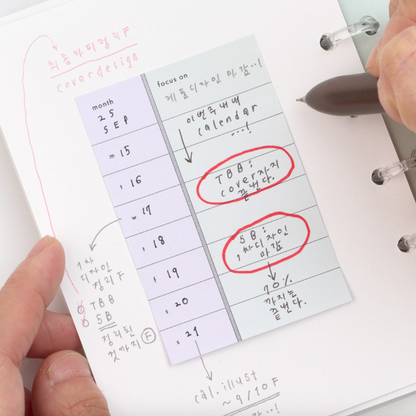 최종가피정리F
coverdesign
month
25
SEP
focus on
제품디자인 마감..!
이번주내내
calendar
...!
m 15
t 16
w 17
t 18
f 19
s 20
s 21
TBB:
cover까지
끝낸다.
SB:
1차디자인
마감
70%
까지는
끝낸다.
1차
디자인
정리F
TBB
SB
정리된
것까지 F
cal.illust
~9/10F